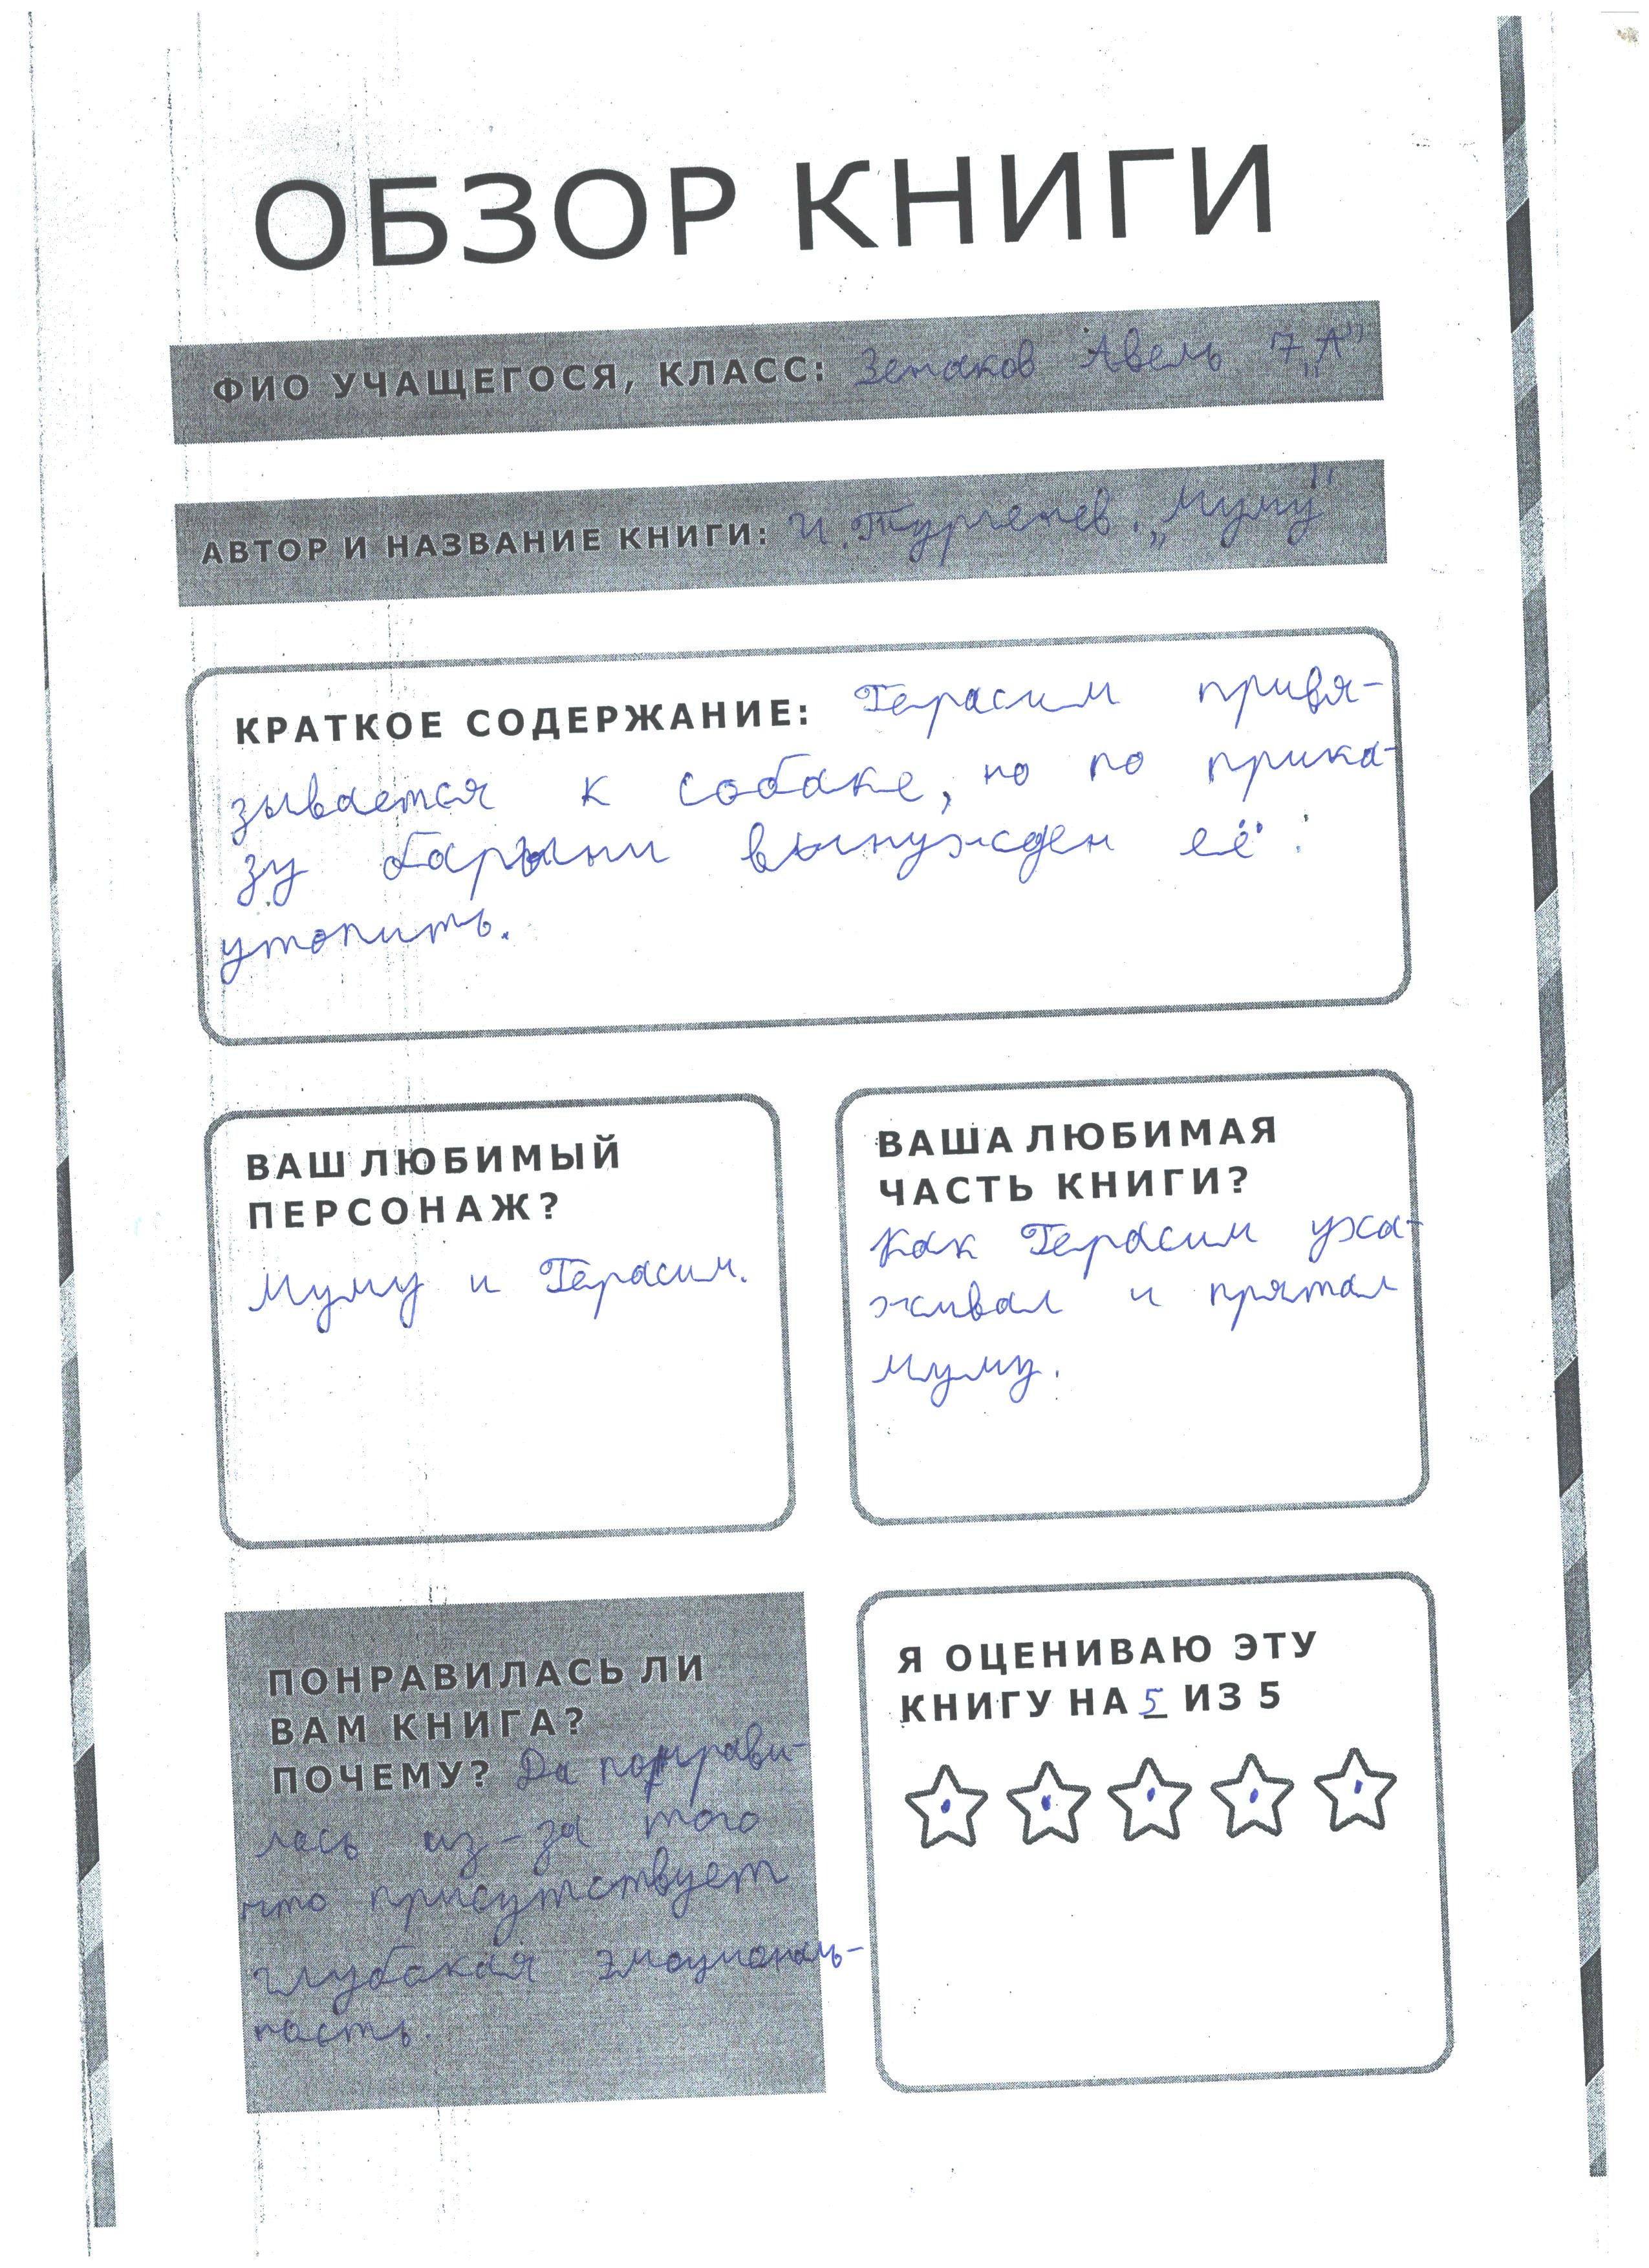 ОБЗОР КНИГИ
ФИО УЧАЩЕГОСЯ, КЛАСС: Авель 7 „А"
АВТОР И НАЗВАНИЕ КНИГИ: И. Тургенев. „Муму"
КРАТКОЕ СОДЕРЖАНИЕ: Герасим привя-
зывается к собаке, но по прика-
зу барыни вынужден её
утопить.
ВАШ ЛЮБИМЫЙ
ПЕРСОНАЖ?
Муму и Герасим.
ВАША ЛЮБИМАЯ
ЧАСТЬ КНИГИ?
Как Герасим уха-
живал и прятал
Муму.
ПОНРАВИЛАСЬ ЛИ
ВАМ КНИГА?
ПОЧЕМУ? Да понрави-
лась из-за того
что присутствует
глубокая эмоциональ-
ность.
Я ОЦЕНИВАЮ ЭТУ
КНИГУ НА 5 ИЗ 5